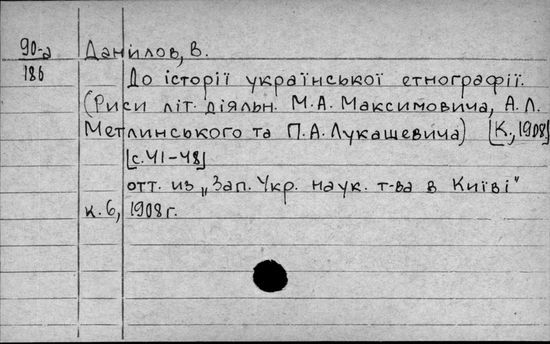 90-а Данилов, В.
186 До історії української етнографії.
(Риси літ. діяльн. М.А. Максимовича, А.Л.
Метлинського та П.А. Лукашевича) [К., 1908]
[с. 41-48]
отт. из „Зап. Укр. наук. т-ва в Київі"
к. 6, 1908 г.